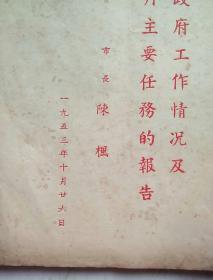 政府工作情况及
月主要任務的報告
市長 陳楓
一九五三年十月廿六日